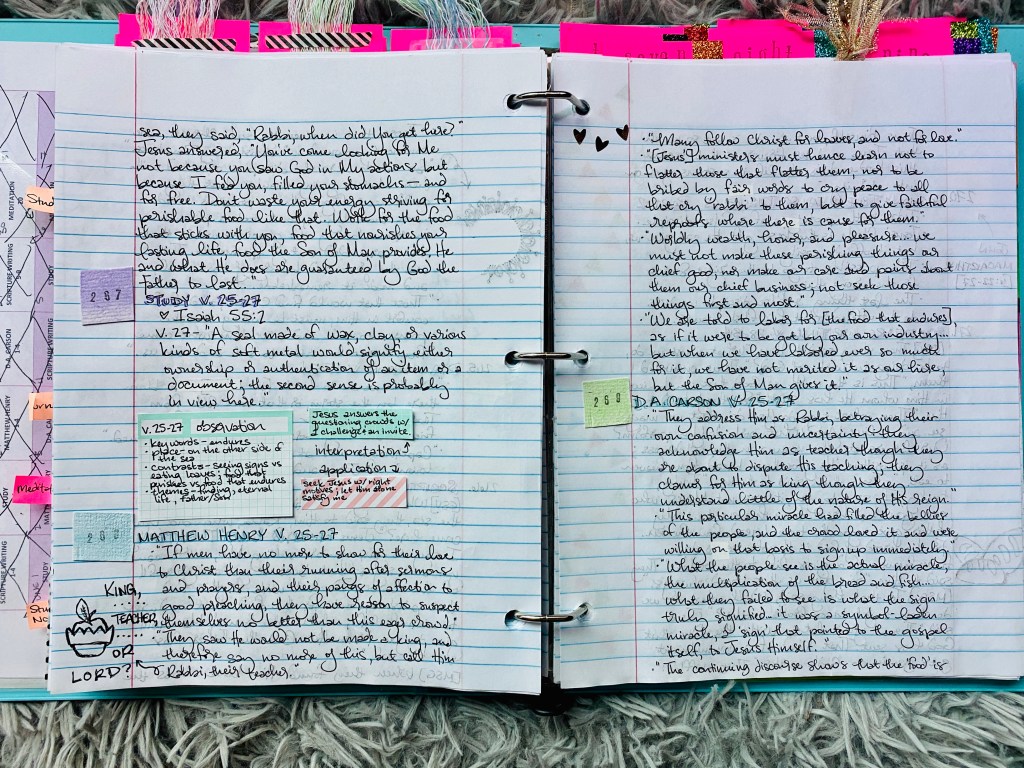 sea, they said, "Rabbi, when did You get here?"
Jesus answered, "You've come looking for Me
not because you saw God in My actions but
because I fed you, filled your stomachs — and
for free. Don't waste your energy striving for
perishable food like that. Work for the food
that sticks with you, food that nourishes your
lasting life, food the Son of Man provides. He
and what He does are guaranteed by God the
Father to last."
267
STUDY V. 25-27
Isaiah 55:2
V. 27 - "A seal made of wax, clay, or various
kinds of soft metal would signify either
ownership or authentication of an item or a
document; the second sense is probably
in view here."
v. 25-27 observation
• key words - endures
• place - on the other side of
the sea
• contrasts - seeing signs vs
eating loaves; food that
perishes vs food that endures
• themes - finding, eternal
life, Father/Son
Jesus answers the
questioning crowds w/
challenge + an invite
interpretation
application
seek Jesus w/ right
motives; let Him alone
satisfy me
MATTHEW HENRY V. 25-27
• "If men have no more to show for their love
to Christ than their running after sermons
and prayers, and their pangs of affection to
good preaching, they have reason to suspect
themselves no better than this eager crowd."
• "They saw He would not be made a king, and
therefore say no more of this, but call Him
Rabbi, their teacher."
KING,
TEACHER,
OR
LORD?
• "Many follow Christ for loaves, and not for love."
• "[Jesus'] ministers must hence learn not to
flatter those that flatter them, nor to be
bribed by fair words to cry peace to all
that cry 'rabbi' to them, but to give faithful
reproofs where there is cause for them."
• "Worldly wealth, honor, and pleasure... we
must not make these perishing things our
chief good, nor make our care and pains about
them our chief business; not seek those
things first and most."
• "We are told to labor for [the food that endures],
as if it were to be got by our own industry...
but when we have labored ever so much
for it, we have not merited it as our hire,
but the Son of Man gives it."
D.A. CARSON V. 25-27
• "They address Him as Rabbi, betraying their
own confusion and uncertainty: they
acknowledge Him as teacher though they
are about to dispute His teaching; they
clamor for Him as king though they
understand little of the nature of His reign."
• "This particular miracle had filled the bellies
of the people, and the crowd loved it and were
willing on that basis to sign up immediately."
• "What the people see is the actual miracle,
the multiplication of the bread and fish...
what they failed to see is what the sign
truly signified: it was a symbol-laden
miracle, a sign that pointed to the gospel
itself, to Jesus Himself."
• "The continuing discourse shows that the 'food' is
MEDITATION
SCRIPTURE WRITING
STUDY
D.A. CARSON
MATTHEW HENRY
SCRIPTURE WRITING
STUDY